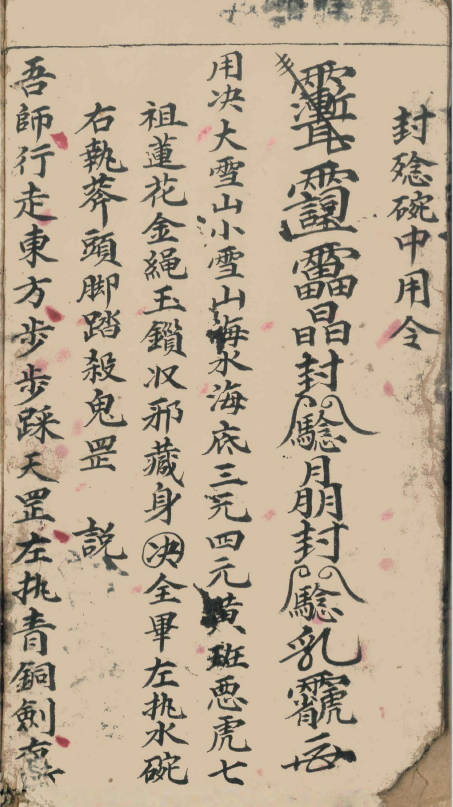 封殮碗中用令
封 月朋封 乳
用决大雪山小雪山海水海底三元四元黄班悪虎七
祖蓮花金繩玉鎖収邪藏身决全畢左执水碗
右執莽頭脚踏殺鬼罡 説
吾師行走東方步步踩天罡左执青銅劍右